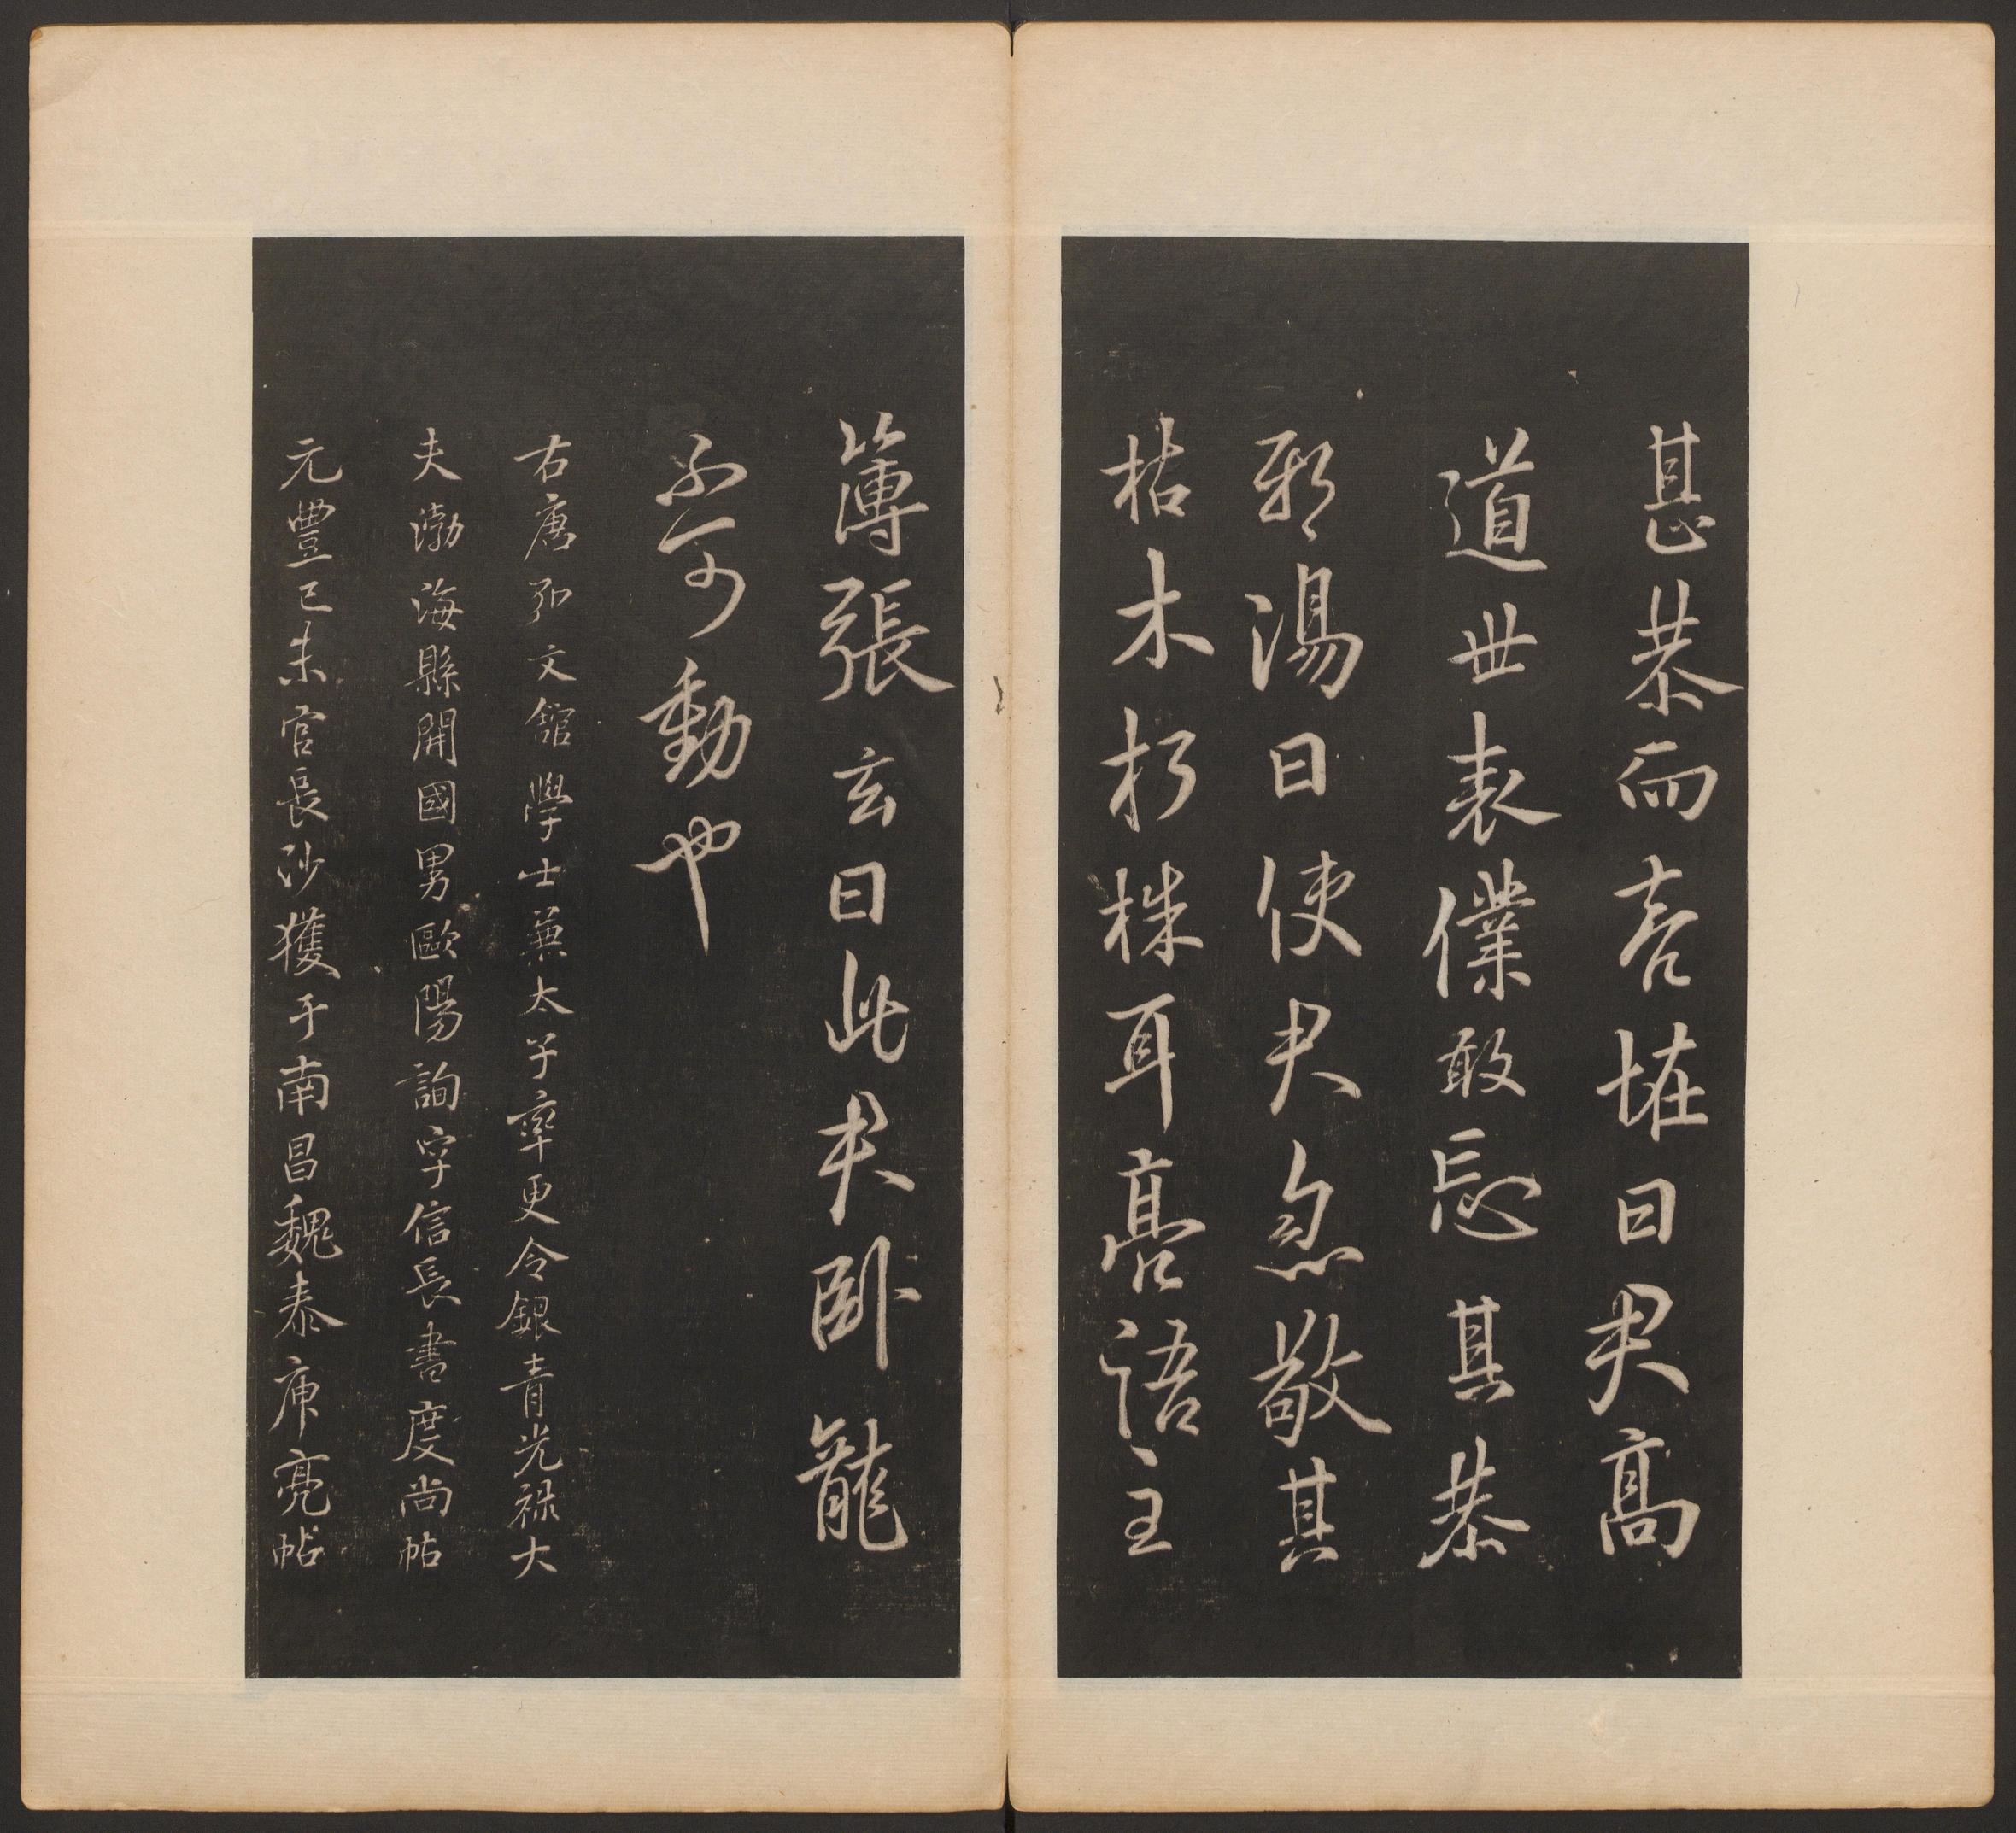 甚恭而曰君高
道世表僕敢忘其恭
邪湯曰使君忽敬其
枯木朽株耳亮語主
簿張玄曰此君臥龍
不可動也
右唐弘文館學士兼太子率更令銀青光禄大
夫渤海縣開國男歐陽詢字信長書度尚帖
元豐己未官長沙獲于南昌魏泰庾亮帖